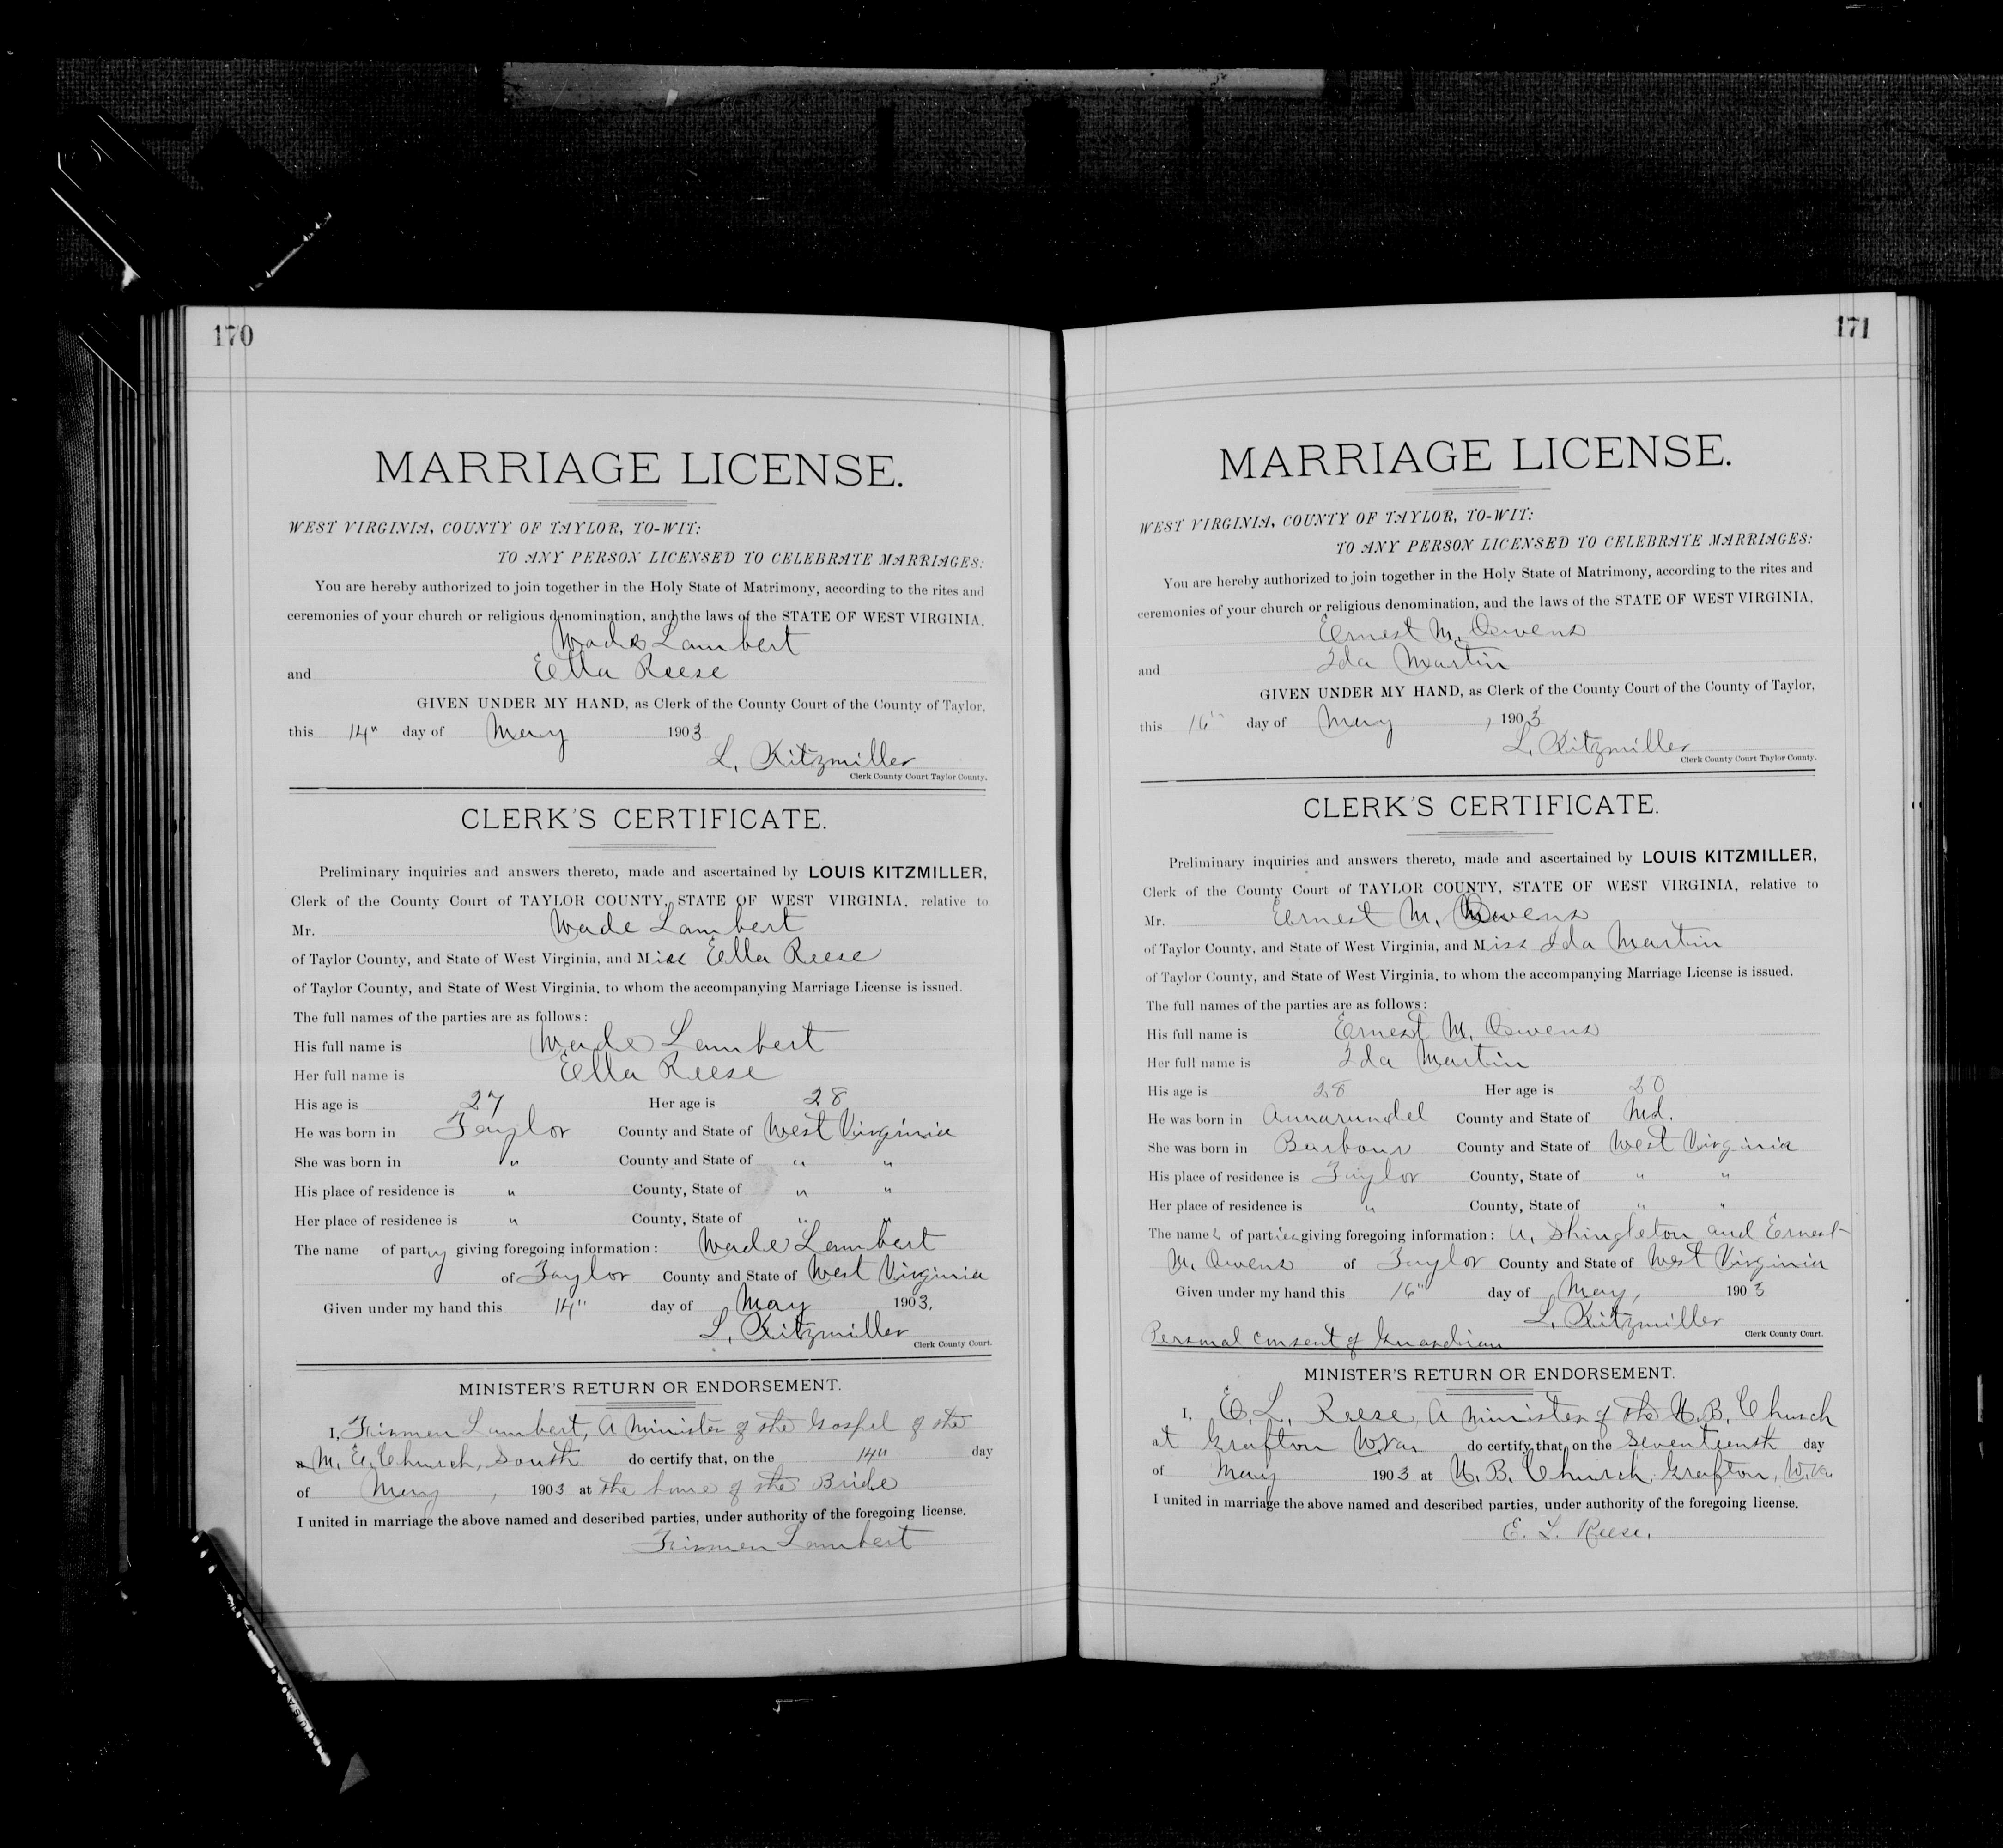 170
MARRIAGE LICENSE.
WEST VIRGINIA, COUNTY OF TAYLOR, TO-WIT:
TO ANY PERSON LICENSED TO CELEBRATE MARRIAGES:
You are hereby authorized to join together in the Holy State of Matrimony, according to the rites and
ceremonies of your church or religious denomination, and the laws of the STATE OF WEST VIRGINIA,
Wade Lambert
and Ella Reese
GIVEN UNDER MY HAND, as Clerk of the County Court of the County of Taylor,
this 14" day of May 1903
L. Kitzmiller
Clerk County Court Taylor County.
CLERK'S CERTIFICATE.
Preliminary inquiries and answers thereto, made and ascertained by LOUIS KITZMILLER,
Clerk of the County Court of TAYLOR COUNTY, STATE OF WEST VIRGINIA, relative to
Mr. Wade Lambert
of Taylor County, and State of West Virginia, and Miss Ella Reese
of Taylor County, and State of West Virginia, to whom the accompanying Marriage License is issued.
The full names of the parties are as follows:
His full name is Wade Lambert
Her full name is Ella Reese
His age is 27 Her age is 28
He was born in Taylor County and State of West Virginia
She was born in " County and State of " "
His place of residence is " County, State of " "
Her place of residence is " County, State of " "
The name of party giving foregoing information: Wade Lambert
of Taylor County and State of West Virginia
Given under my hand this 14" day of May 1903.
L. Kitzmiller
Clerk County Court.
MINISTER'S RETURN OR ENDORSEMENT.
I, Lambert, A Minister of the Gospel of the
M. E. Church, South do certify that, on the 14" day
of May, 1903 at the home of the Bride
I united in marriage the above named and described parties, under authority of the foregoing license.
Lambert
171
MARRIAGE LICENSE.
WEST VIRGINIA, COUNTY OF TAYLOR, TO-WIT:
TO ANY PERSON LICENSED TO CELEBRATE MARRIAGES:
You are hereby authorized to join together in the Holy State of Matrimony, according to the rites and
ceremonies of your church or religious denomination, and the laws of the STATE OF WEST VIRGINIA,
Ernest M. Owens
and Ida Martin
GIVEN UNDER MY HAND, as Clerk of the County Court of the County of Taylor,
this 16" day of May, 1903
L. Kitzmiller
Clerk County Court Taylor County.
CLERK'S CERTIFICATE.
Preliminary inquiries and answers thereto, made and ascertained by LOUIS KITZMILLER,
Clerk of the County Court of TAYLOR COUNTY, STATE OF WEST VIRGINIA, relative to
Mr. Ernest M. Owens
of Taylor County, and State of West Virginia, and Miss Ida Martin
of Taylor County, and State of West Virginia, to whom the accompanying Marriage License is issued.
The full names of the parties are as follows:
His full name is Ernest M. Owens
Her full name is Ida Martin
His age is 28 Her age is 20
He was born in Annarundel County and State of Md.
She was born in Barbour County and State of West Virginia
His place of residence is Taylor County, State of " "
Her place of residence is " County, State of " "
The names of parties giving foregoing information: A. Shingleton and Ernest
M. Owens of Taylor County and State of West Virginia
Given under my hand this 16" day of May, 1903
L. Kitzmiller
Clerk County Court.
Personal consent of Guardian
MINISTER'S RETURN OR ENDORSEMENT.
I, E. L. Reese, A Minister of the U. B. Church
at Grafton W.Va. do certify, that, on the Seventeenth day
of May 1903 at U. B. Church, Grafton, W. Va.
I united in marriage the above named and described parties, under authority of the foregoing license.
E. L. Reese.